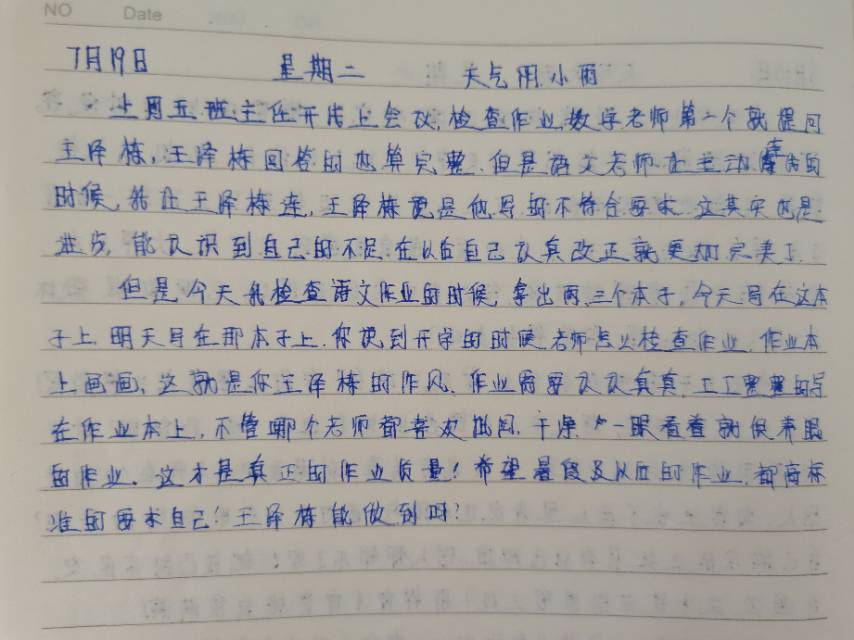 NO Date
7月19日 星期二 天气阴.小雨
上周五班主任开线上会议,检查作业,数学老师第一个就提问
王泽栋,王泽栋回答的也算完整.但是语文老师在主动的
时候,我让王泽栋连,王泽栋说是他写的不符合要求.这其实也是
进步,能认识到自己的不足.在以后自己认真改正就更加完美了.
但是今天我检查语文作业的时候;拿出两,三个本子,今天写在这本
子上.明天写在那本子上.你说到开学的时候老师点火检查作业.作业本
上画画,这就是你王泽栋的作风.作业需要认认真真.工工整整的写
在作业本上,不管哪个老师都喜欢批阅.干净.一眼看着就很养眼
的作业.这才是真正的作业质量!希望暑假及以后的作业.都高标
准的要求自己!王泽栋能做到吗?